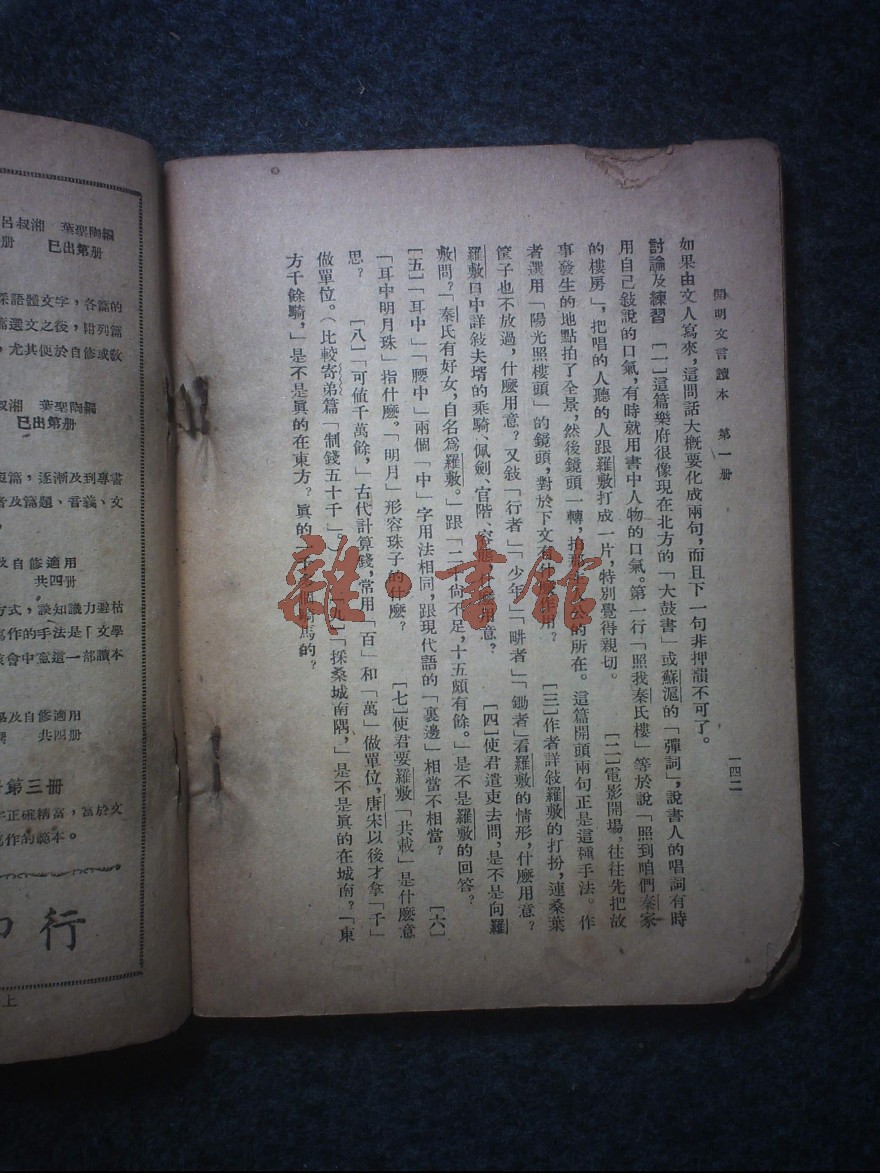 開明文言讀本　第一册
一四二
如果由文人寫來，這問話大概要化成兩句，而且下一句非押韻不可了。
討論及練習　［一］這篇樂府很像現在北方的「大鼓書」或蘇滬的「彈詞」，說書人的唱詞有時
用自己敍說的口氣，有時就用書中人物的口氣。第一行「照我秦氏樓」等於說「照到咱們秦家
的樓房」，把唱的人聽的人跟羅敷打成一片，特別覺得親切。　［二］電影開場，往往先把故
事發生的地點拍了全景，然後鏡頭一轉，找那主人公的所在。這篇開頭兩句正是這種手法。作
者選用「陽光照樓頭」的鏡頭，對於下文有什麼作用？　［三］作者詳敍羅敷的打扮，連桑葉
筐子也不放過，什麼用意？又敍「行者」「少年」「畊者」「鋤者」看羅敷的情形，什麼用意？
羅敷口中詳敍夫壻的乘騎、佩劍、官階、容態，什麼用意？　［四］使君遣吏去問，是不是向羅
敷問？「秦氏有好女，自名爲羅敷。」跟「二十尚不足，十五頗有餘。」是不是羅敷的回答？
［五］「耳中」「腰中」兩個「中」字用法相同，跟現代語的「裏邊」相當不相當？　［六］
「耳中明月珠」指什麼。「明月」形容珠子的什麼？　［七］使君要羅敷「共載」是什麼意
思？　［八］「可値千萬餘，」古代計算錢，常用「百」和「萬」做單位，唐宋以後才拿「千」
做單位。（比較寄弟篇「制錢五十千」）　［九］「採桑城南隅，」是不是眞的在城南？「東
方千餘騎，」是不是眞的在東方？眞的一千個騎馬的？
呂叔湘　葉聖陶編
册　已出第　册
採語體文字，各篇的
篇選文之後，附列篇
，尤其便於自修或敎
叔湘　葉聖陶編
已出第　册
短篇，逐漸及到專書
者及篇題、音義、文
及自修適用
共四册
方式，談知識力避枯
寫作的手法是「文學
這一部讀本
及自修適用
共四册
第三册
字正確精當，富於文
寫作的範本。
印行
上
雜·書館